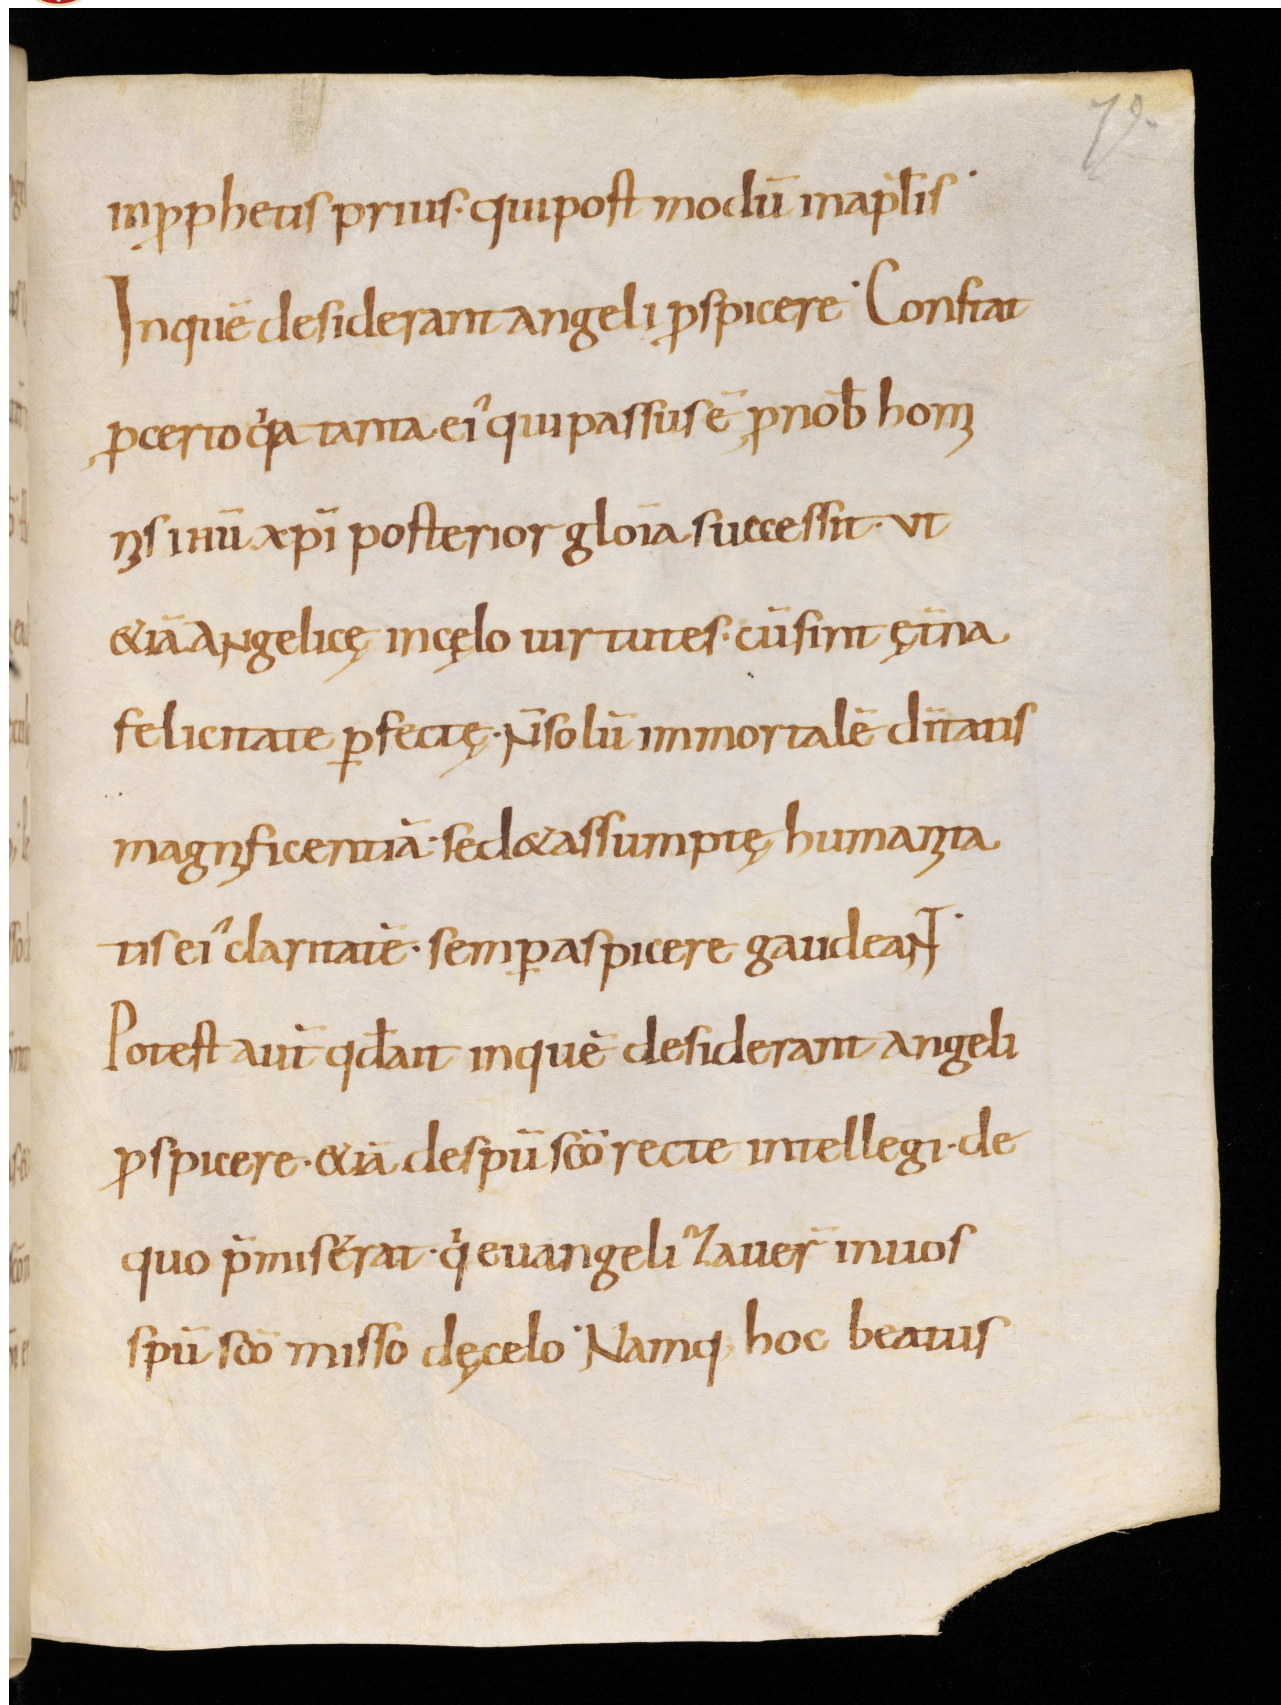 79.
inꝓphetis prius· qui post modū inaplīs·
Inquē desiderant angeli ꝓspicere· Constat
ꝓcerto qͥa tanta ei' qui passus ē ꝓ nob̄ hom
nis ihū xpī posterior gloīa successit· ut
&iā angelicę incęlo uirtutes· cū sint ęt̄na
felicitate ꝑfectę· n̄ solū immortalē diītatis
magnificentiā· sed & assumptę humanita
tis ei' claritatē· semꝑ aspicere gaudeant·
Potest aut̄ qđ ait inquē desiderant angeli
ꝓspicere· &iā despū sc̄o recte intellegi· de
quo p̄miserat· qͥ euangelizauer̄ inuos
spū sc̄o misso dęcelo· Namq; hoc beatus